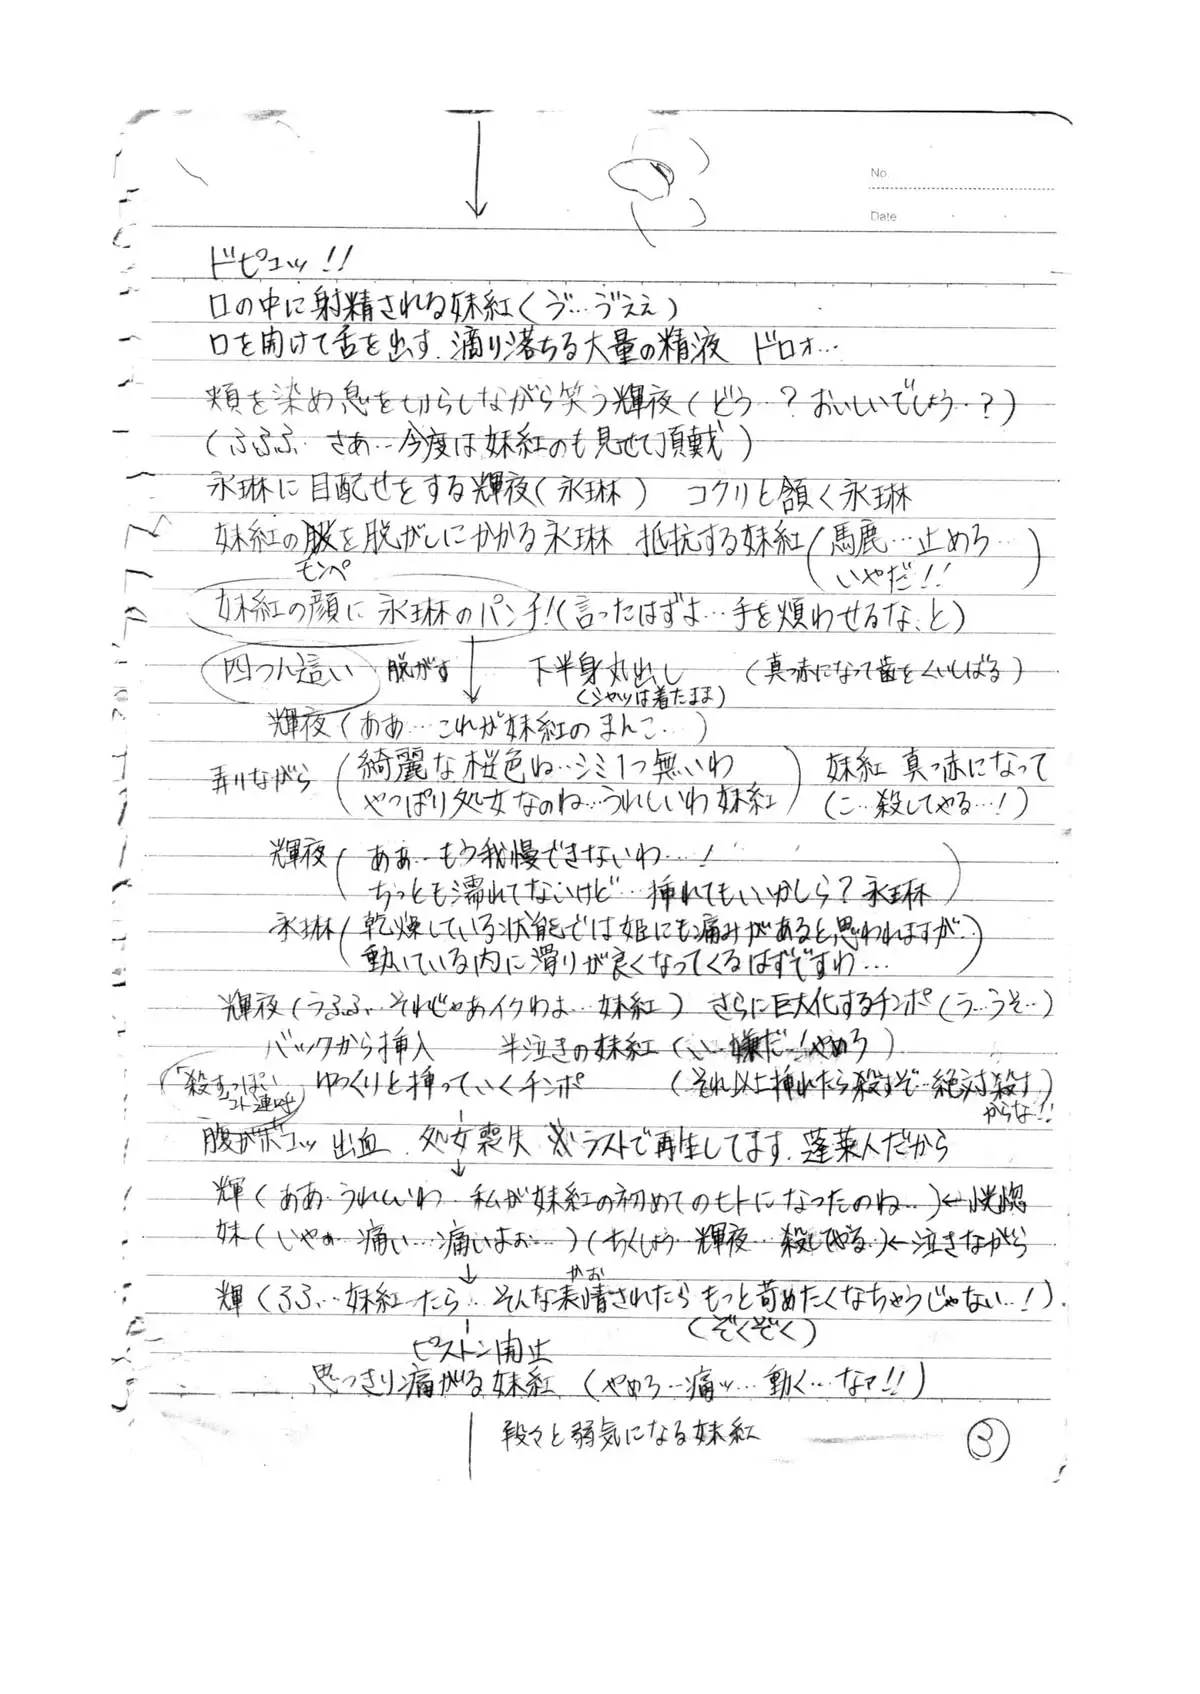 No.
Date
ドピュッ!!
口の中に射精される妹紅(ゔ…ゔえぇ)
口を開けて舌を出す.滴り落ちる大量の精液 ドロォ…
頬を染め息を切らしながら笑う輝夜(どう…?おいしいでしょう…?)
(ふふふ…さあ…今度は妹紅のも見せて頂戴)
永琳に目配せをする輝夜(永琳) コクリと頷く永琳
妹紅の服を脱がしにかかる永琳 抵抗する妹紅(馬鹿…止めろ…
モンペ いやだ!!)
妹紅の顔に永琳のパンチ!(言ったはずよ…手を煩わせるな、と)
四つん這い 脱がす 下半身丸出し (真っ赤になって歯をくいしばる)
(シャツは着たまま)
輝夜(ああ…これが妹紅のまんこ…)
弄りながら (綺麗な桜色ね…シミ1つ無いわ 妹紅 真っ赤になって
やっぱり処女なのね…うれしいわ妹紅) (こ…殺してやる…!)
輝夜(ああ…もう我慢できないわ…!
ちっとも濡れてないけど…挿れてもいいかしら?永琳)
永琳(乾燥している状態では姫にも痛みがあると思われますが…
動いている内に滑りが良くなってくるはずですわ…)
輝夜(うふふ…それじゃあイクわよ…妹紅) さらに巨大化するチンポ(う…うそ…)
バックから挿入 半泣きの妹紅(い…嫌だ…!やめろ)
(「殺す」っぽい ゆっくりと挿っていくチンポ (それ以上挿れたら殺すぞ…絶対殺す
コト連呼) からな!!)
腹がボコッ 出血.処女喪失 ※ラストで再生してます.蓬莱人だから
輝(ああ…うれしいわ…私が妹紅の初めてのヒトになったのね…)←恍惚
妹(いやぁ…痛い…痛いよぉ…)(ちくしょう…輝夜…殺してやる…)←泣きながら
かお
輝(ふふ…妹紅ったら…そんな表情されたらもっと苛めたくなちゃうじゃない…!)
(ぞくぞく)
ピストン開始
思っきり痛がる妹紅 (やめろ…痛ッ…動く…なァ!!)
段々と弱気になる妹紅
③